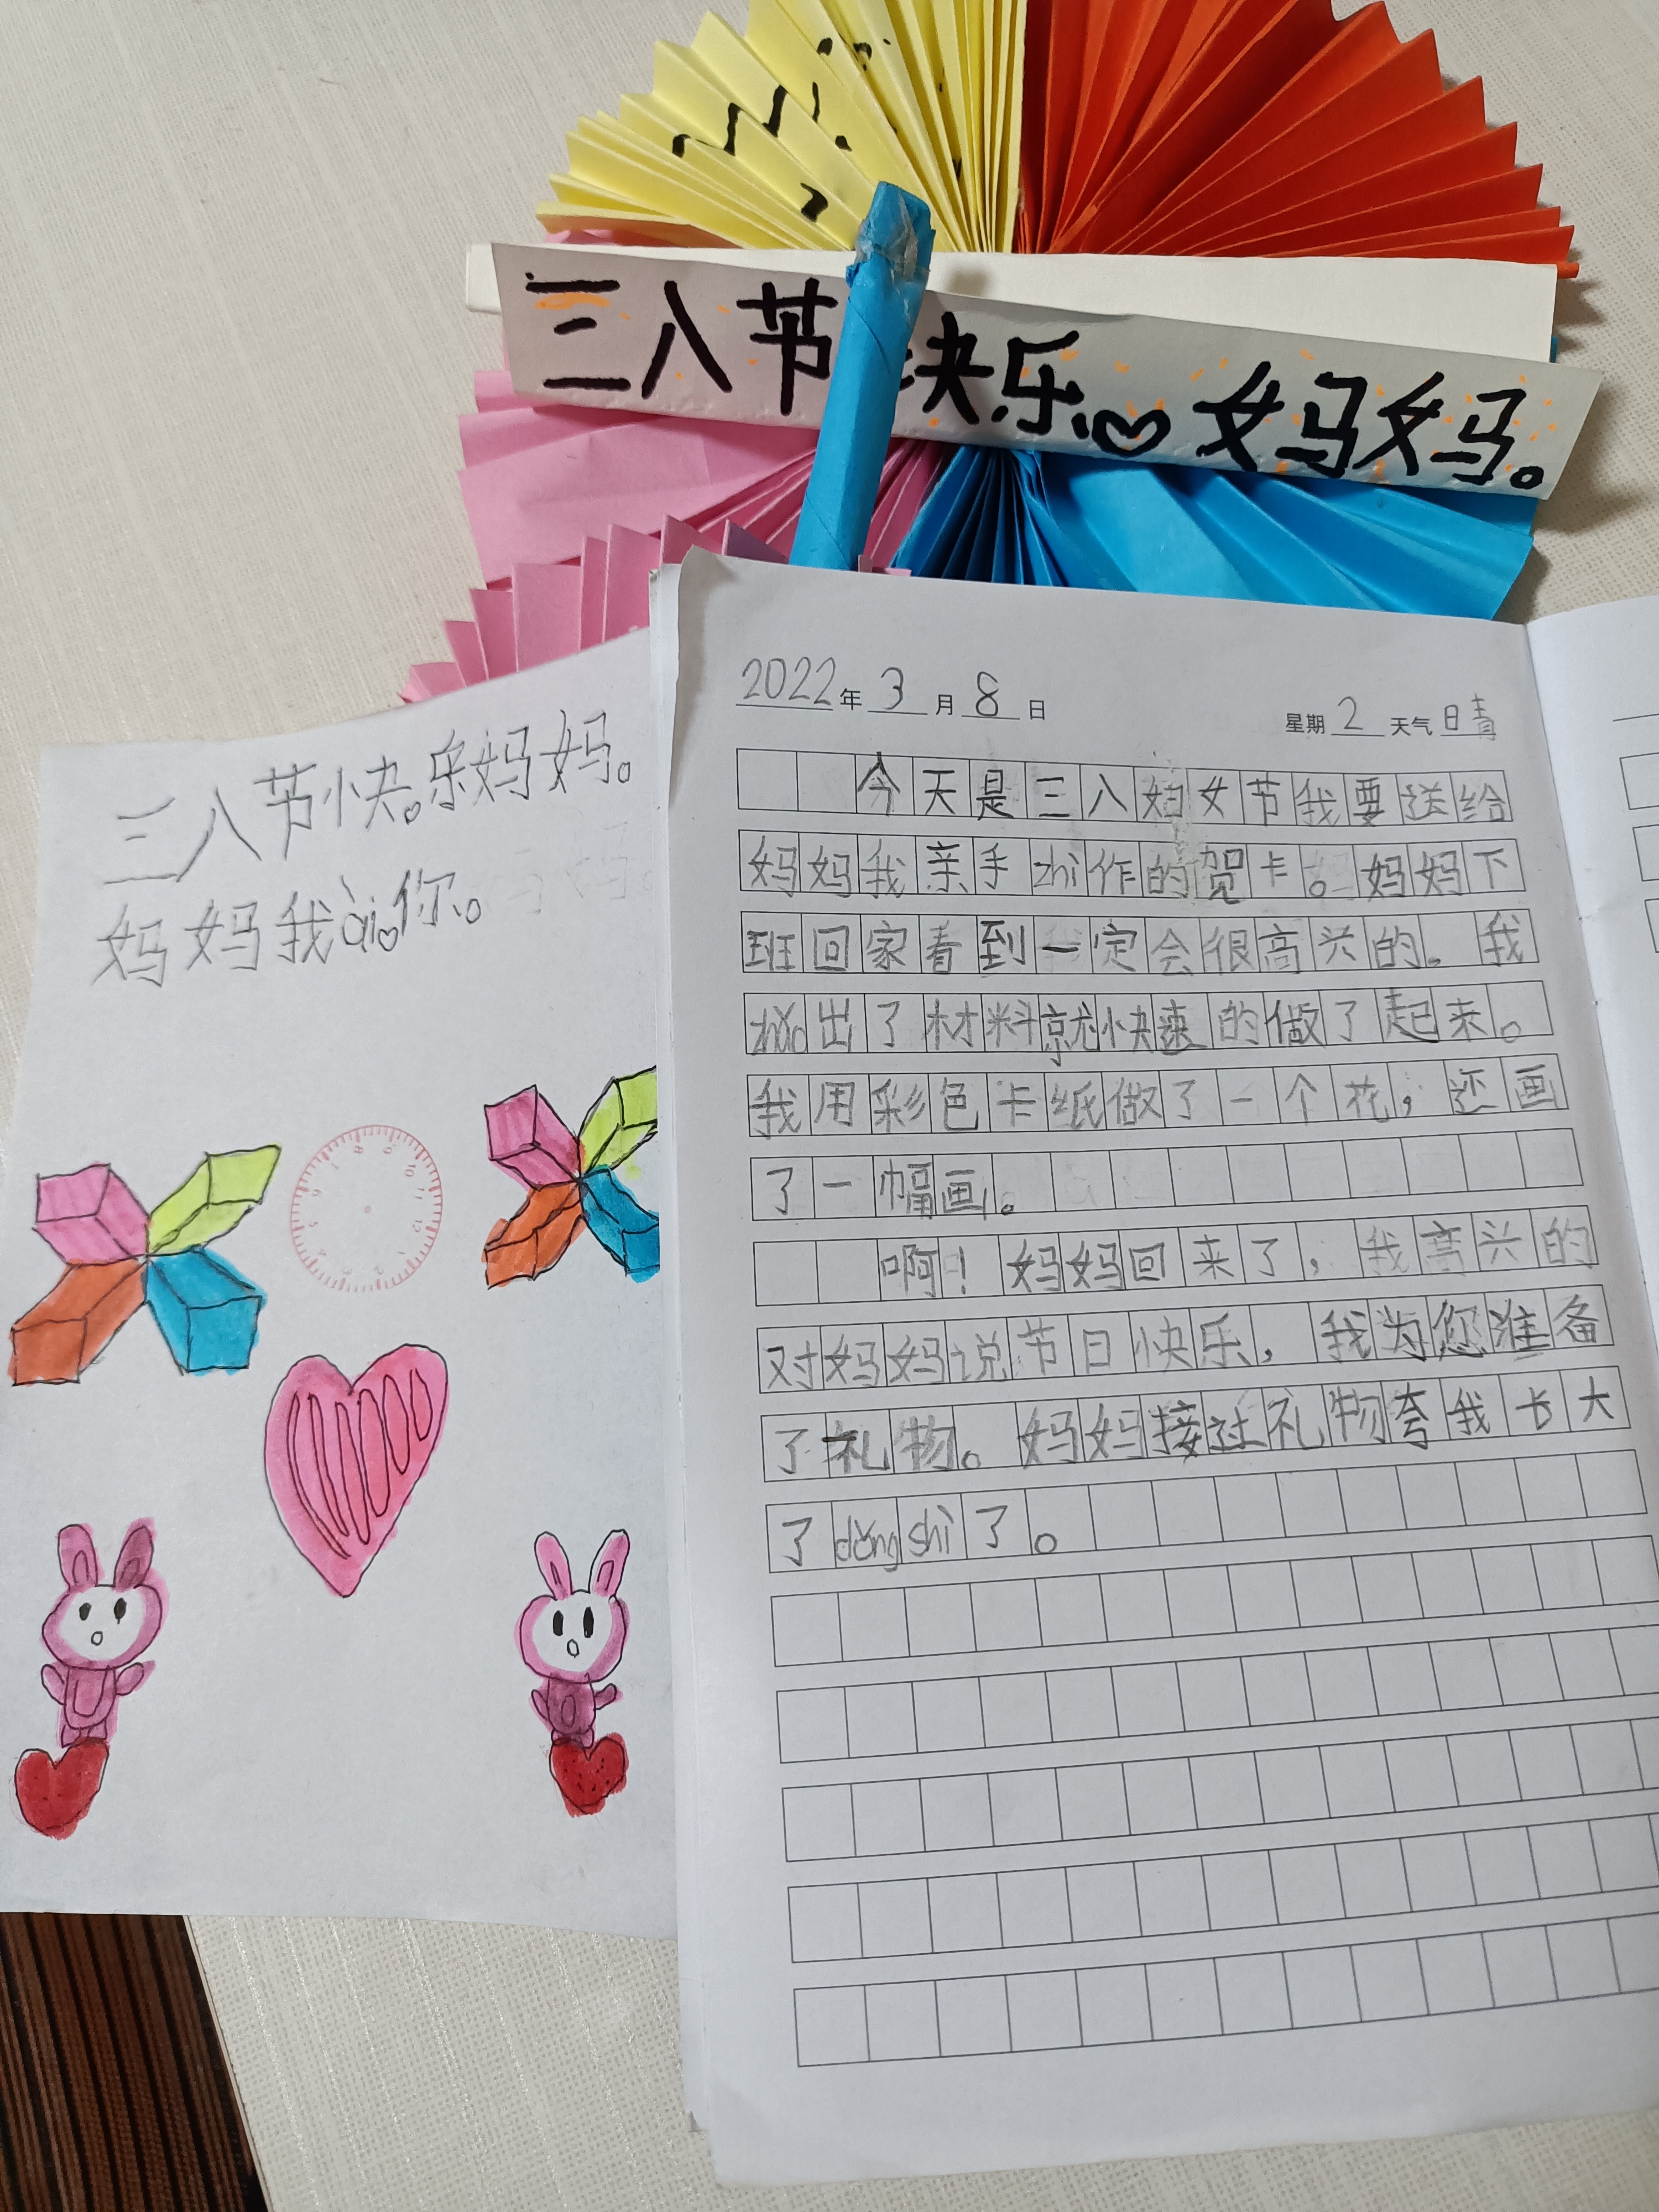 三八节快乐 妈妈。
三八节快乐妈妈。
妈妈我ài你。
2022年3月8日 星期2天气晴
今天是三八妇女节我要送给
妈妈我亲手zhì作的贺卡。妈妈下
班回家看到一定会很高兴的。我
zhǎo出了材料就快速的做了起来。
我用彩色卡纸做了一个花，还画
了一幅画。
啊！妈妈回来了，我高兴的
对妈妈说节日快乐，我为您准备
了礼物。妈妈接过礼物夸我长大
了dǒng shì了。